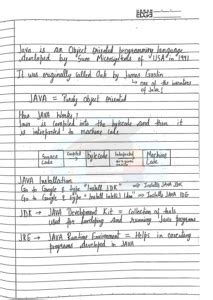 Java is an Object Oriented programming language
developed by Sun Microsystems of USA in 1991
It was originally called Oak by James Goslin
→ one of the inventors
of Java!
JAVA = Purely Object oriented
How JAVA Works?
Java is compiled into the bytecode and then it
is interpreted to machine code
Source Code Compiled Bytecode Interpreted Machine Code
JAVA Installation
Go to Google & type "Install JDK" ⇒ Installs JAVA JDK
Go to Google & type "Install IntelliJ Idea" ⇒ Installs JAVA IDE
JDK → JAVA Development Kit = Collection of tools
used for developing and running Java programs
JRE → JAVA Runtime Environment = Helps in executing
programs developed in JAVA